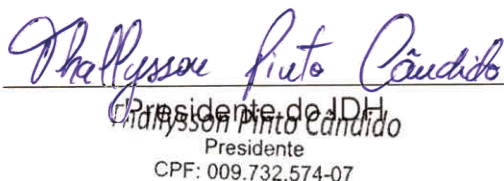 Thallysson Pinto Cândido
Presidente do JDH
Thallysson Pinto Cândido
Presidente
CPF: 009.732.574-07